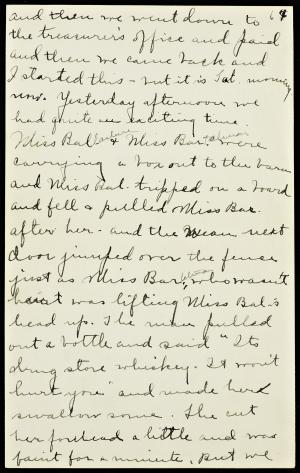 and then we went down to 64
the treasurer's office and paid
and then we came back and
I started this - but it is Sat. morning
now. Yesterday afternoon we
had quite an exciting time.
Miss Bal & Miss Bar. were
carrying a box out to the barn
and Miss Bal. tripped on a board
and fell & pulled Miss Bar.
after her - and the man next
door jumped over the fence
just as Miss Bar, who wasn't
hurt was lifting Miss Bal-s
head up. The man pulled
out a bottle and said "Its
drug store whiskey. It won't
hurt you" and made her
swallow some. She cut
her forehead a little and was
faint for a minute. But we